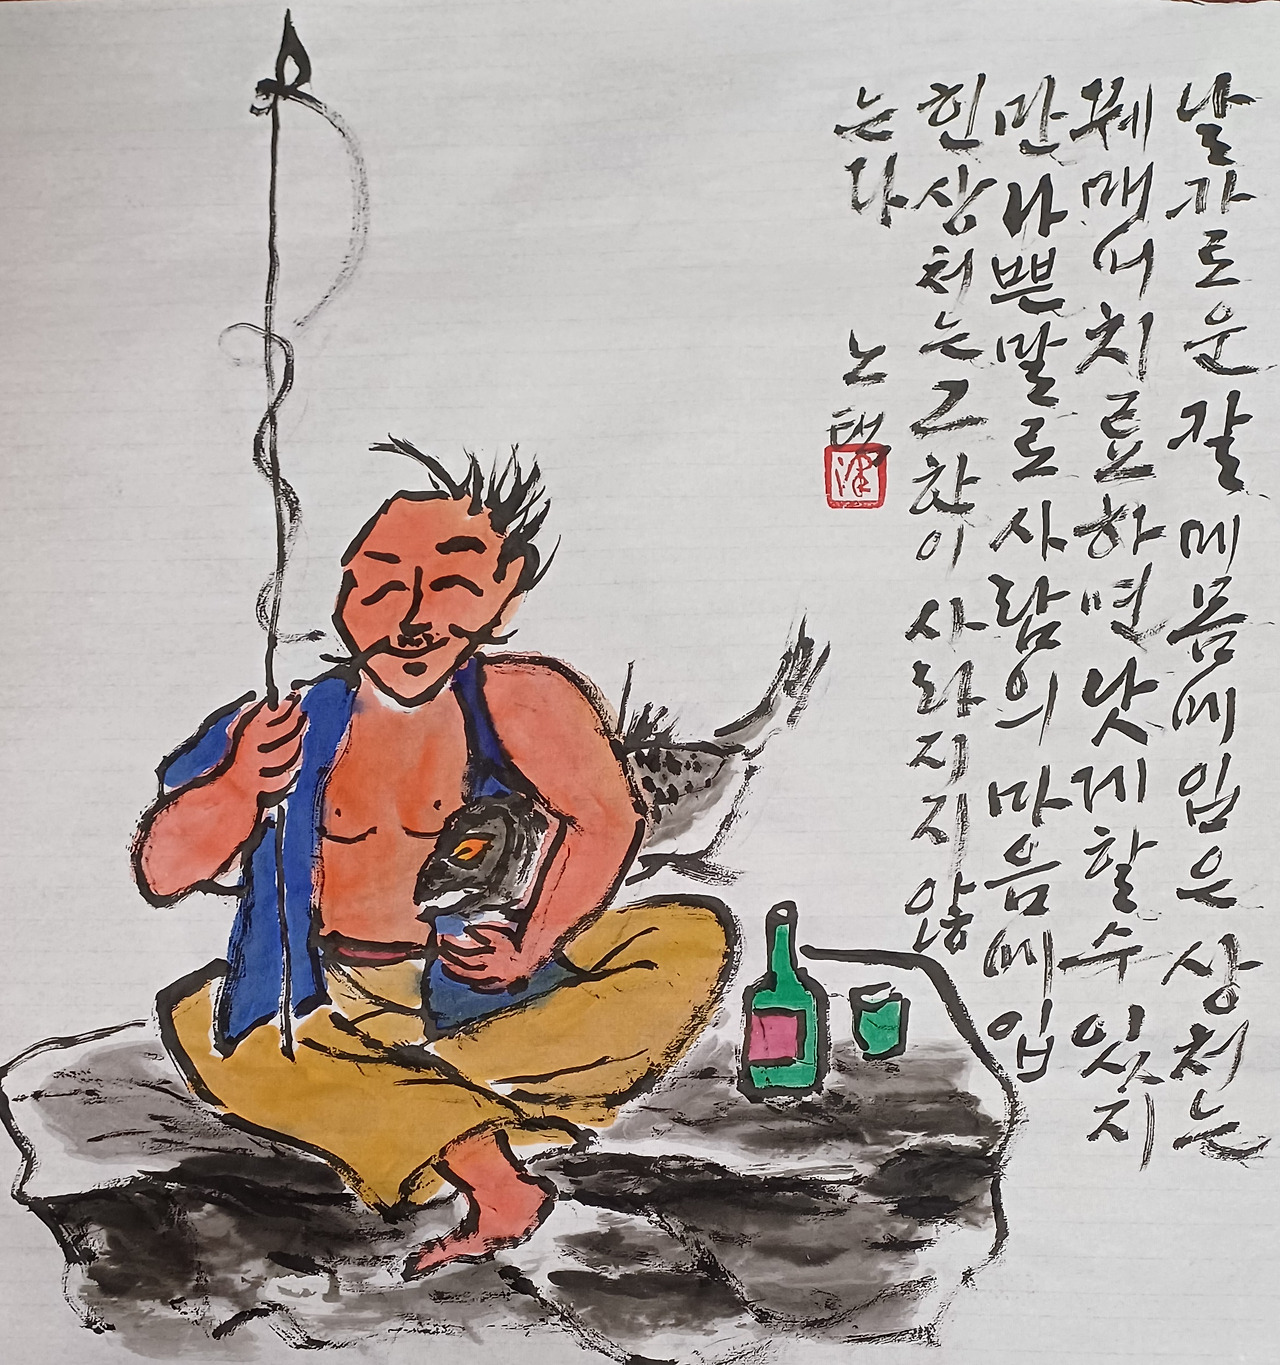 날카로운 칼에 몸에 입은 상처는
꿰매어 치료하면 낫게 할 수 있지
만 나쁜말로 사람의 마음에 입
힌 상처는 그 한이 사라지지 않
는다
노택